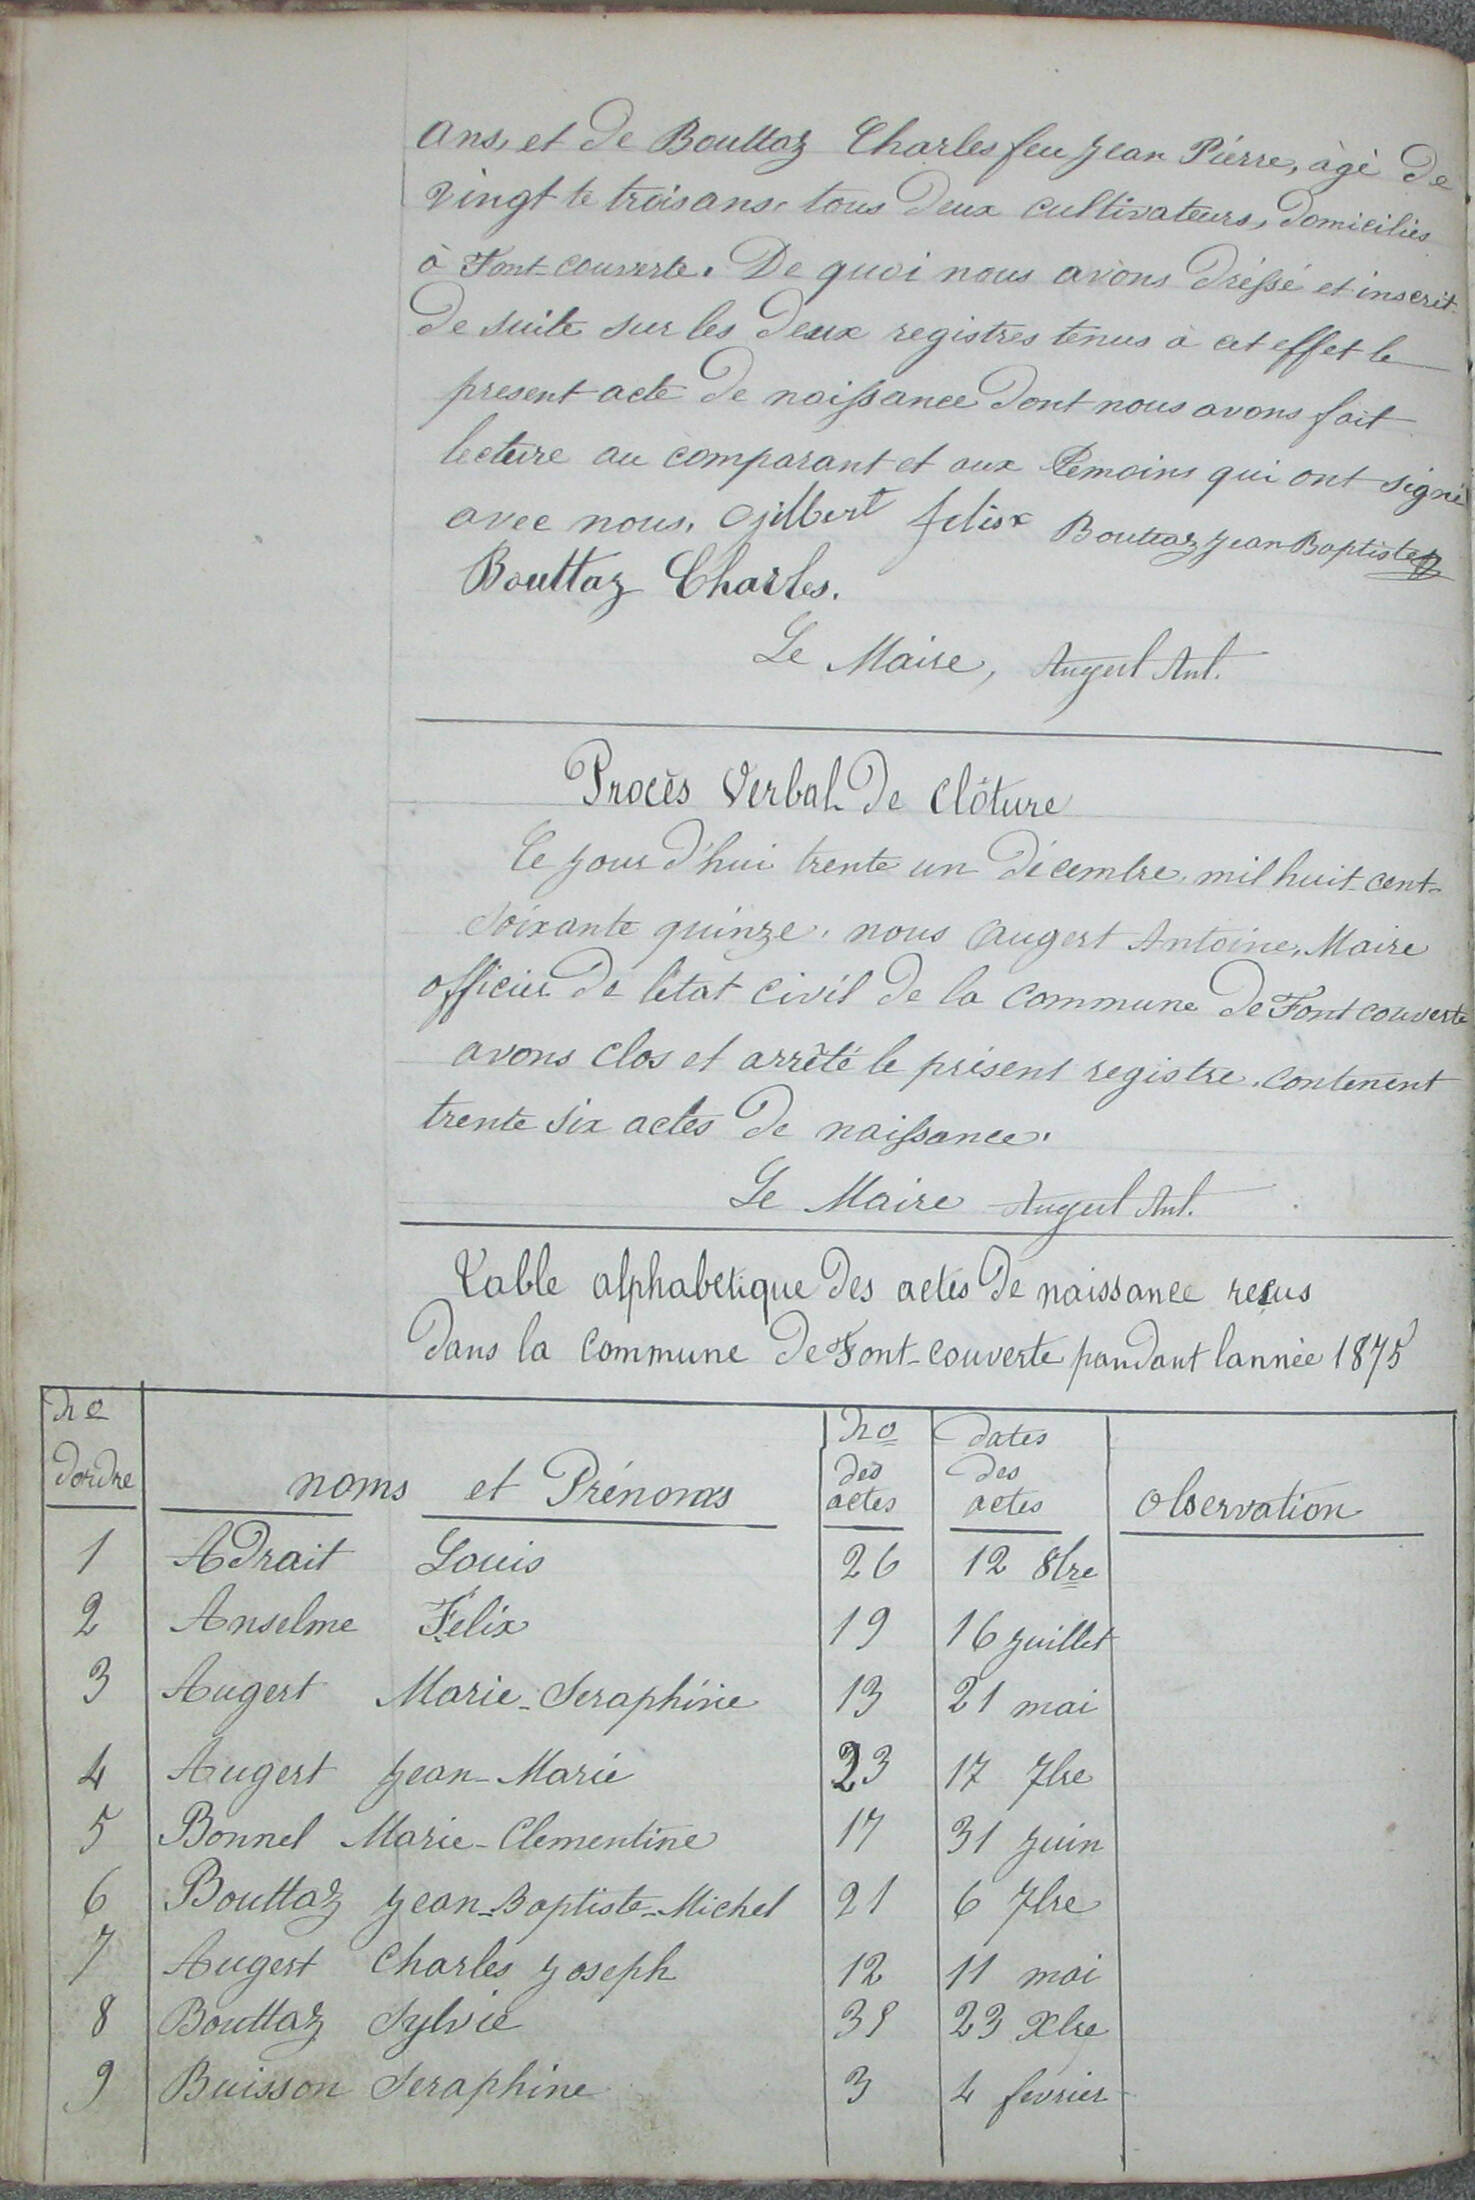 ans, et de Bouttaz Charles feu Jean Piérre, àgé de
vingt te trois ans, tous deux cultivateurs, domiciliés
à Font-couverte. De quoi nous avons dréssé et inscrit
de suite sur les deux registres tenus à cet effet le
present acte de naissance dont nous avons fait
lecture au comparant et aux témoins qui ont signé
avec nous. Gilbert felix Bouttaz Jean Baptiste
Bouttaz Charles.
Le Maire, Augert Ant.
Procès Verbal de Clôture
Ce jour d'hui trente un décembre, mil huit cent-
soixante quinze, nous Augert Antoine, Maire
officier de létat civil de la commune de Font couverte
avons clos et arrêté le présent registre, contenent
trente six actes de naissance.
Le Maire Augert Ant.
Table alphabetique des actes de naissance recus
dans la commune de Font-couverte pandant lannée 1875
No dordre noms et Prénoms No des actes dates des actes observation
1 Adrait Louis 26 12 8bre
2 Anselme Felix 19 16 juillet
3 Augert Marie-Seraphine 13 21 mai
4 Augert Jean-Marie 23 17 7bre
5 Bonnel Marie-Clementine 17 31 juin
6 Bouttaz Jean-Baptiste-Michel 21 6 7bre
7 Augert Charles Joseph 12 11 mai
8 Bouttaz Sylvie 23 Xbre
9 Buisson Seraphine 3 4 fevrier